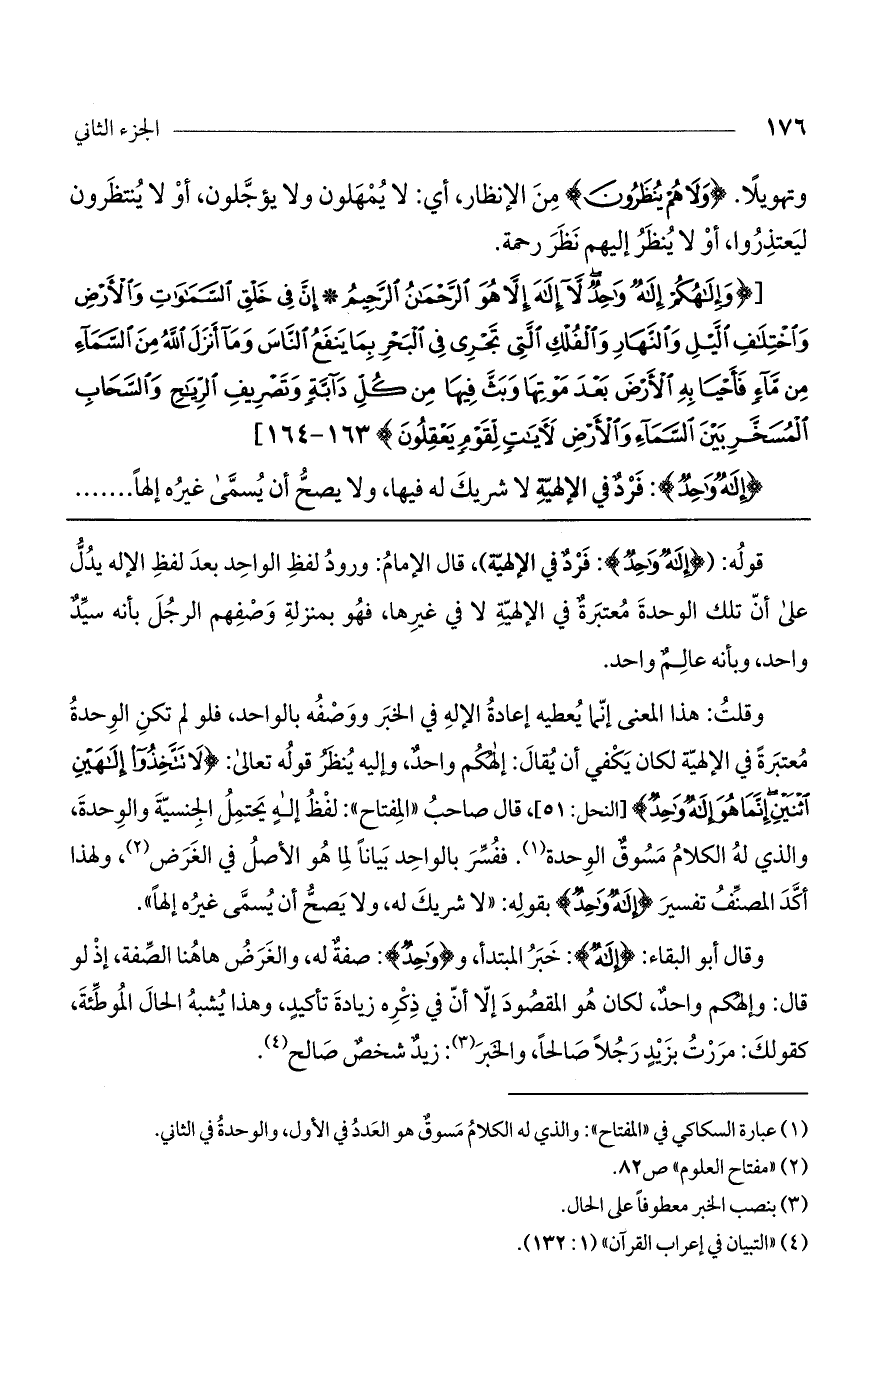 ١٧٦ الجزء الثاني
وتهويلًا. ﴿وَلَا هُمْ يُنظَرُونَ﴾ مِنَ الإنظار، أي: لا يُمْهَلون ولا يؤجَّلون، أوْ لا يُنتظَرون
ليَعتذِرُوا، أوْ لا يُنظَرُ إليهم نَظَرَ رحمة.
[﴿وَإِلَٰهُكُمْ إِلَٰهٌ وَٰحِدٌ ۖ لَّآ إِلَٰهَ إِلَّا هُوَ ٱلرَّحْمَٰنُ ٱلرَّحِيمُ * إِنَّ فِى خَلْقِ ٱلسَّمَٰوَٰتِ وَٱلْأَرْضِ
وَٱخْتِلَٰفِ ٱلَّيْلِ وَٱلنَّهَارِ وَٱلْفُلْكِ ٱلَّتِى تَجْرِى فِى ٱلْبَحْرِ بِمَا يَنفَعُ ٱلنَّاسَ وَمَآ أَنزَلَ ٱللَّهُ مِنَ ٱلسَّمَآءِ
مِن مَّآءٍ فَأَحْيَا بِهِ ٱلْأَرْضَ بَعْدَ مَوْتِهَا وَبَثَّ فِيهَا مِن كُلِّ دَآبَّةٍ وَتَصْرِيفِ ٱلرِّيَٰحِ وَٱلسَّحَابِ
ٱلْمُسَخَّرِ بَيْنَ ٱلسَّمَآءِ وَٱلْأَرْضِ لَءَايَٰتٍ لِّقَوْمٍ يَعْقِلُونَ﴾ ١٦٣-١٦٤]
﴿إِلَٰهٌ وَٰحِدٌ﴾: فَرْدٌ في الإلهيّةِ لا شريكَ له فيها، ولا يصحُّ أن يُسمَّىٰ غيرُه إلهاً.......
قولُه: (﴿إِلَٰهٌ وَٰحِدٌ﴾: فَرْدٌ في الإلهيّة)، قال الإمامُ: ورودُ لفظِ الواحِد بعدَ لفظِ الإله يدُلُّ
علىٰ أنّ تلك الوحدةَ مُعتبَرةٌ في الإلهيّةِ لا في غيرِها، فهُو بمنزلةِ وَصْفِهم الرجُلَ بأنه سيِّدٌ
واحد، وبأنه عالِـمٌ واحد.
وقلتُ: هذا المعنى إنّما يُعطيه إعادةُ الإلهِ في الخبَر ووَصْفُه بالواحد، فلو لم تكنِ الوِحدةُ
مُعتبَرةً في الإلهيّة لكان يَكْفي أن يُقالَ: إلٰهُكُم واحدٌ، وإليه يُنظَرُ قولُه تعالىٰ: ﴿لَا تَتَّخِذُوٓاْ إِلَٰهَيْنِ
ٱثْنَيْنِ ۖ إِنَّمَا هُوَ إِلَٰهٌ وَٰحِدٌ﴾ [النحل: ٥١]، قال صاحبُ «المِفتاح»: لفْظُ إلـٰهٍ يَحتمِلُ الجِنسيّةَ والوِحدةَ،
والذي لهُ الكلامُ مَسُوقٌ الوِحدة(١). ففُسِّرَ بالواحِد بَياناً لِما هُو الأصلُ في الغَرَض(٢)، ولهذا
أكَّدَ المصنِّفُ تفسيرَ ﴿إِلَٰهٌ وَٰحِدٌ﴾ بقولِه: «لا شريكَ له، ولا يَصحُّ أن يُسمَّى غيرُه إلهاً».
وقال أبو البقاء: ﴿إِلَٰهٌ﴾: خَبَرُ المبتدأ، و﴿وَٰحِدٌ﴾: صفةٌ له، والغَرَضُ هاهُنا الصِّفة، إذْ لو
قال: وإلٰهُكم واحدٌ، لكان هُو المقصُودَ إلّا أنّ في ذِكْرِه زيادةَ تأكيدٍ، وهذا يُشبهُ الحالَ المُوطِّئةَ،
كقولكَ: مرَرْتُ بزَيْدٍ رَجُلاً صَالحاً، والخبَرَ(٣): زيدٌ شخصٌ صَالح(٤).
(١) عبارة السكاكي في «المفتاح»: والذي له الكلامُ مَسوقٌ هو العَددُ في الأول، والوحدةُ في الثاني.
(٢) «مفتاح العلوم» ص٨٢.
(٣) بنصب الخبر معطوفاً على الحال.
(٤) «التبيان في إعراب القرآن» (١: ١٣٢).